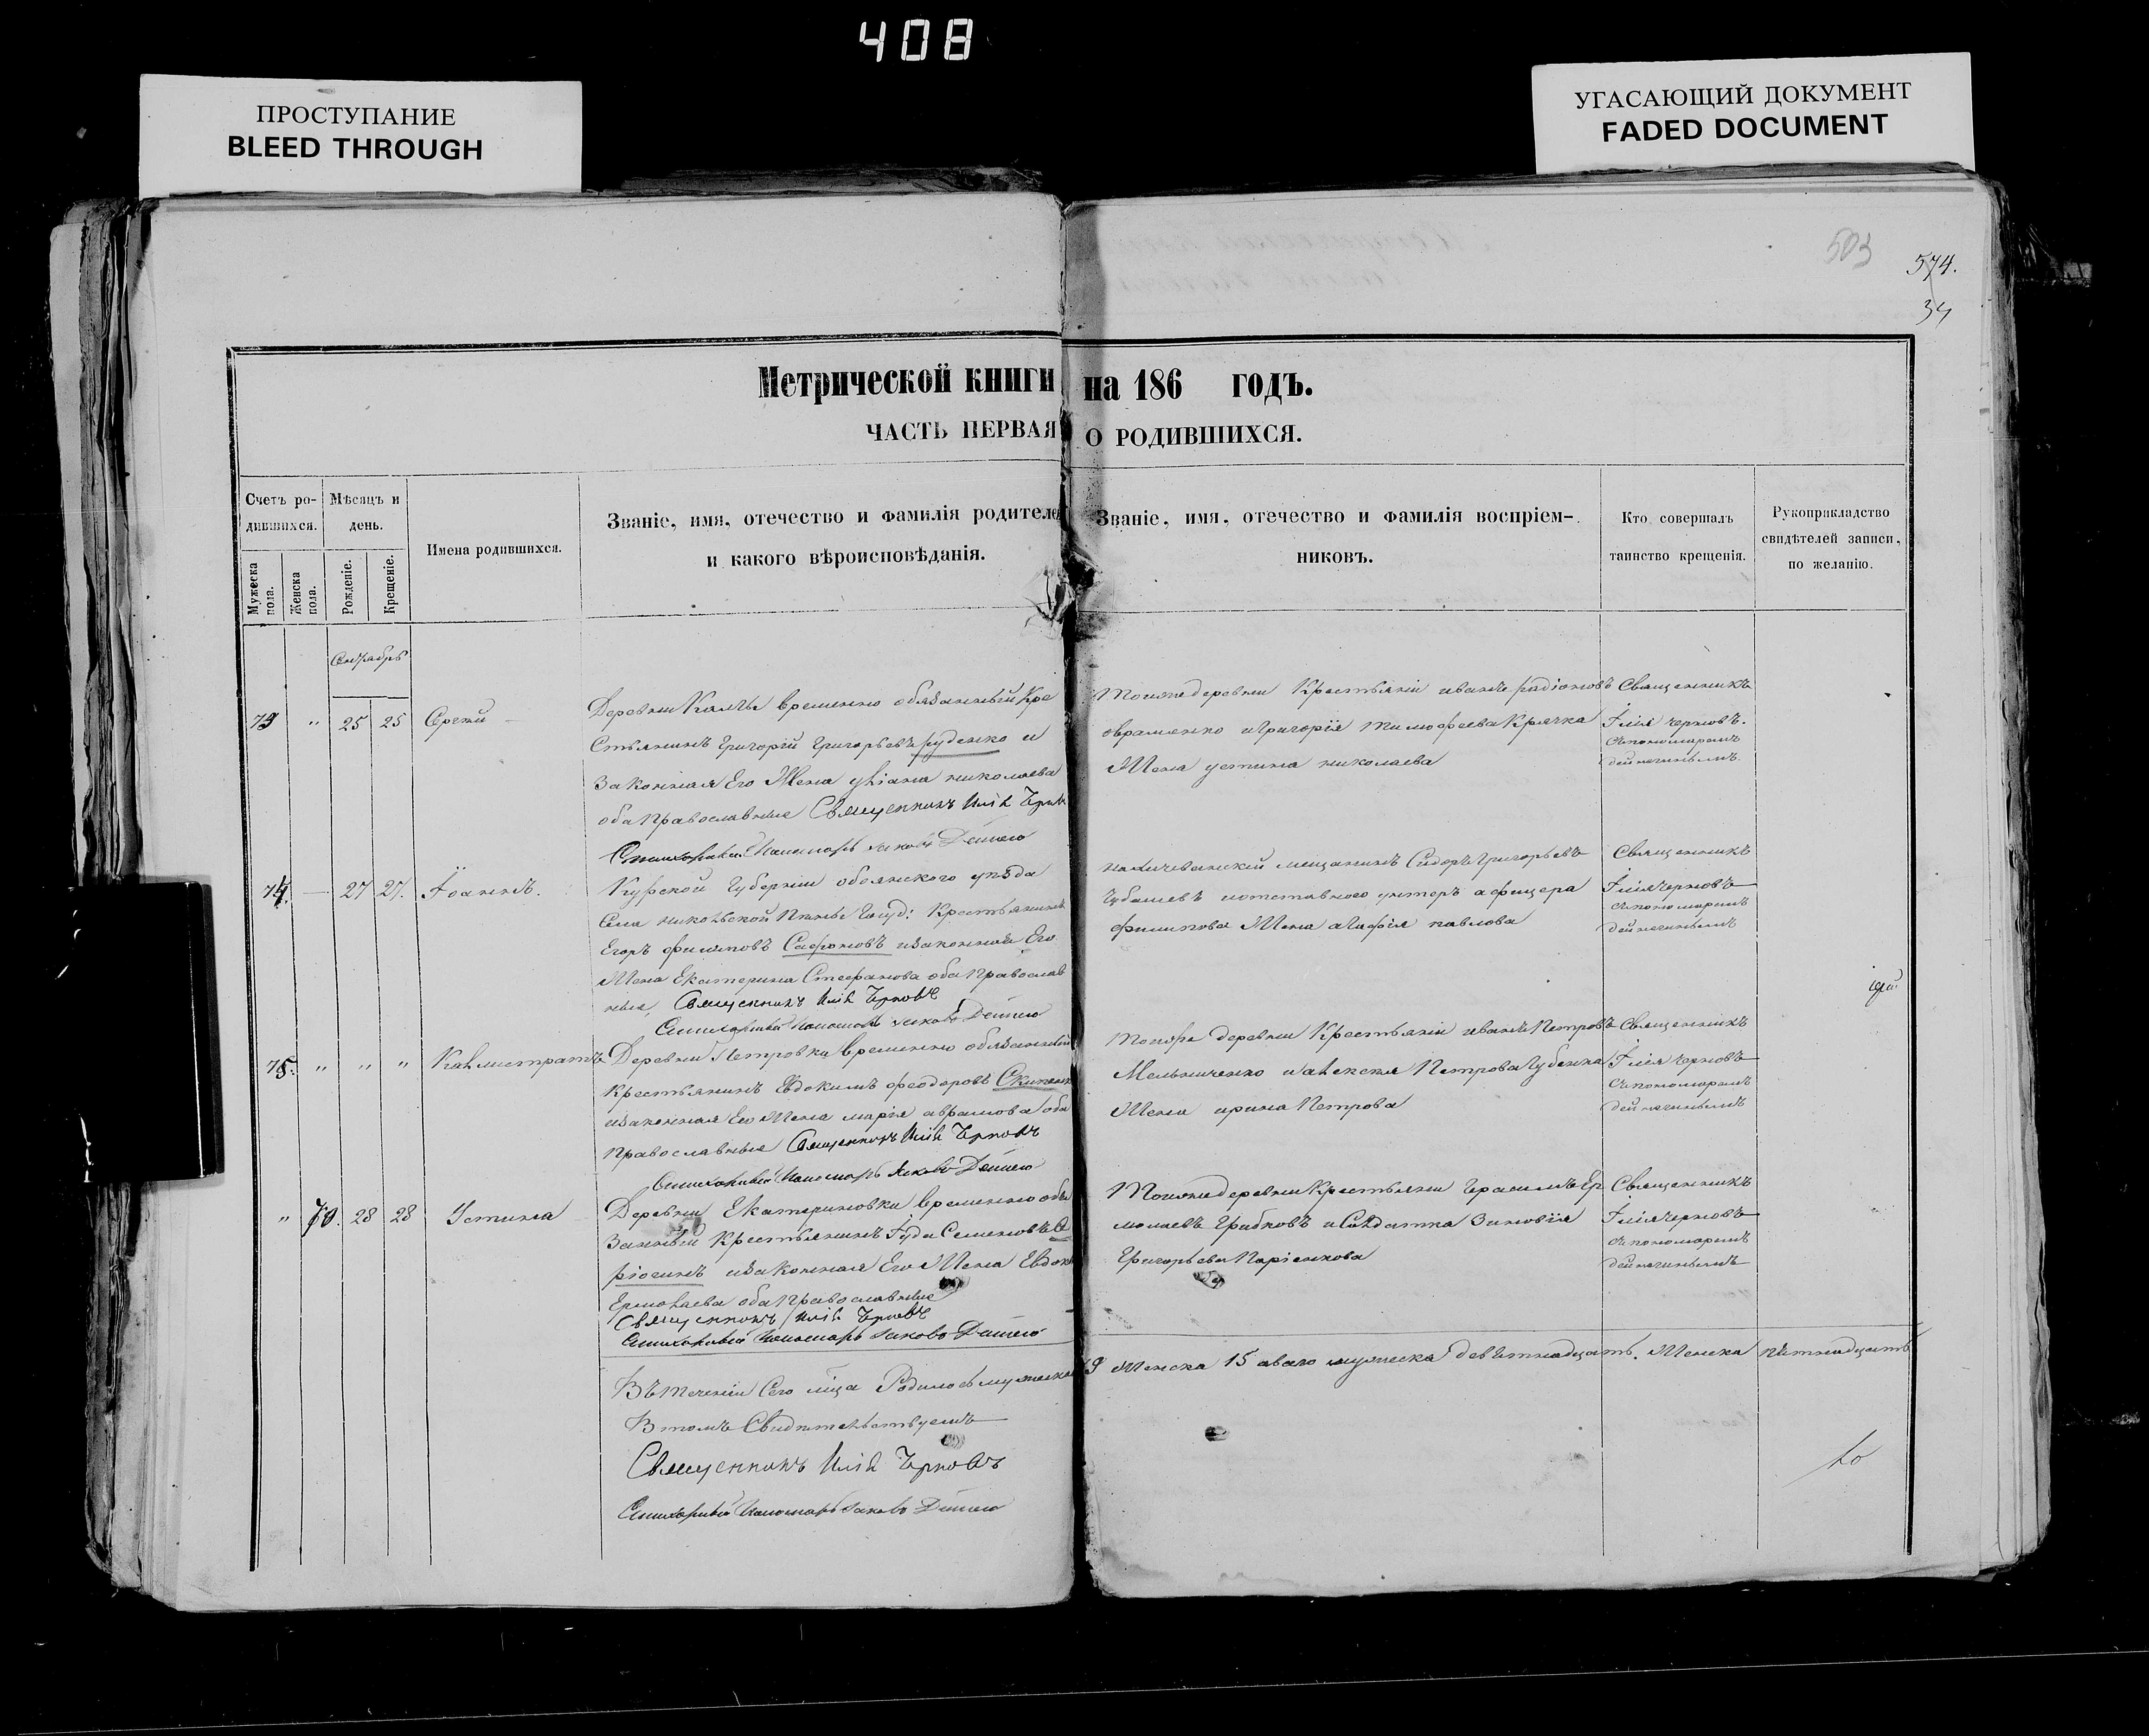 408
ПРОСТУПАНИЕ
BLEED THROUGH
УГАСАЮЩИЙ ДОКУМЕНТ
FADED DOCUMENT
503
574.
34
Метрической книги на 186 годъ.
ЧАСТЬ ПЕРВАЯ О РОДИВШИХСЯ.
Счетъ ро-
дившихся.
Мужеска пола.
Женска пола.
Мѣсяцъ и
день.
Рожденіе.
Крещеніе.
Имена родившихся.
Званіе, имя, отечество и фамилія родителе
и какого вѣроисповѣданія.
Званіе, имя, отечество и фамилія воспріем-
никовъ.
Кто совершалъ
таинство крещенія.
Рукоприкладство
свидѣтелей записи,
по желанію.
Сентябрь
73 " 25 25 Сергій
Деревни временно обязанный Кре
стьянинъ Григорій Григорьевъ Руденко и
Законная Его Жена николаева
оба Православные Священникъ Илія Чернов
Стихарный Пономарь Яковъ
тояже деревни Крестьянин иванъ радіоновъ
овраменко и Григорія тимофеева Крячка
Жена устина николаева
Священникъ
Ілія черновъ.
съ пономаремъ
74. — 27 27. Іоаннъ.
Курской Губерніи обоянского уезда
Села никольской Госуд: Крестьянинъ
Егоръ филиповъ Сафоновъ изаконная Его
Жена Екатерина Стефанова оба Православ
ные Священникъ Илія Черновъ
Стихарный Пономарь Яковъ
нахичеванской мещанинъ Сидоръ Григорьевъ
иотставного унтеръ афицера
филипова Жена агафія павлова
Священникъ
Ілія черновъ
съ пономаремъ
75. " " " Калистратъ
Деревни Петровки временно обязанный
Крестьянинъ Евдокимъ феодоровъ
изаконная Его Жена марія аврамова оба
Православные Священникъ Илія Черновъ
Стихарный Пономарь Яковъ
тойже деревни Крестьянин иванъ Петровъ
Мельниченко иалексея Петрова Губенка
Жена ирина Петрова
Священникъ
Ілія черновъ
съ пономаремъ
" 70. 28 28 Устина
Деревни Екатериновки временно обя
занный Крестьянинъ Іуда Семеновъ
изаконная Его Жена Евдок
Ермолаева оба Православные
Священникъ Илія Черновъ
Стихарный Пономарь Яковъ
Тояже деревни Крестьянин Герасимъ Ер
молаевъ Грибковъ и Солдатка Зиновія
Григорьева
Священникъ
Ілія черновъ
съ пономаремъ
Въ течении Сего мца Родилось мужеска 19 Женска 15 авсего мужеска девятнадцать. Женска пятнадцать
В томъ Свидетельствуемъ
Священникъ Илія Черновъ
Стихарный Пономарь Яковъ